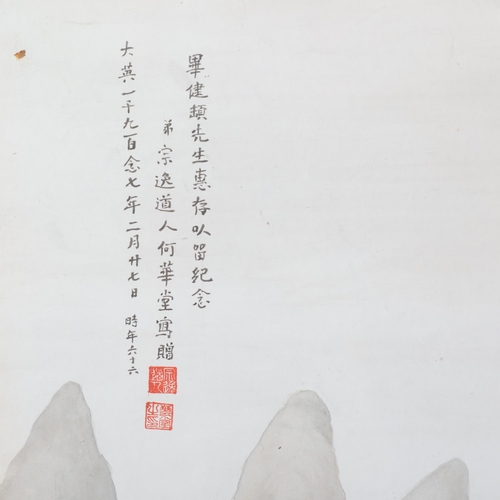 畢健頓先生惠存以留紀念
弟宗逸道人何華堂寫贈
大英一千九百念七年二月廿七日 時年六十六